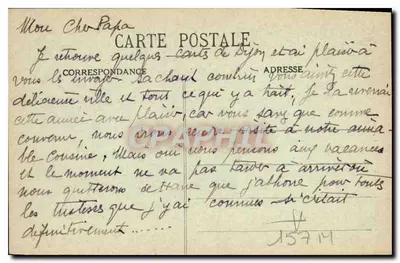 Mon Cher Papa
CARTE POSTALE
Je retrouve quelques cartes de Dijon et ai plaisir à
vous les envoyer sachant combien vous aimez cette
CORRESPONDANCE ADRESSE
délicieuse ville et tout ce qui y a trait. Je la reverrai
cette année avec plaisir, car vous savez que comme
convenu, nous irons rendre visite à notre aima-
ble cousine. Mais oui nous pensons aux vacances
et le moment ne va pas tarder à arriver où
nous quitterons que j'abhorre pour toutes
les tristesses que j'y ai connues si c'était
définitivement......
15714